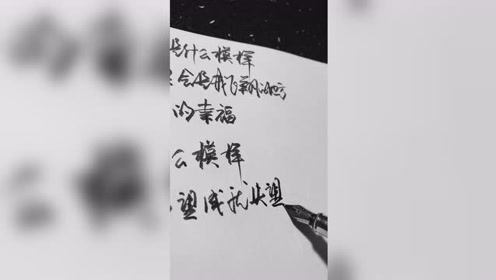 是什么模样
会是我飞翔的
的幸福
么模样
望成就失望